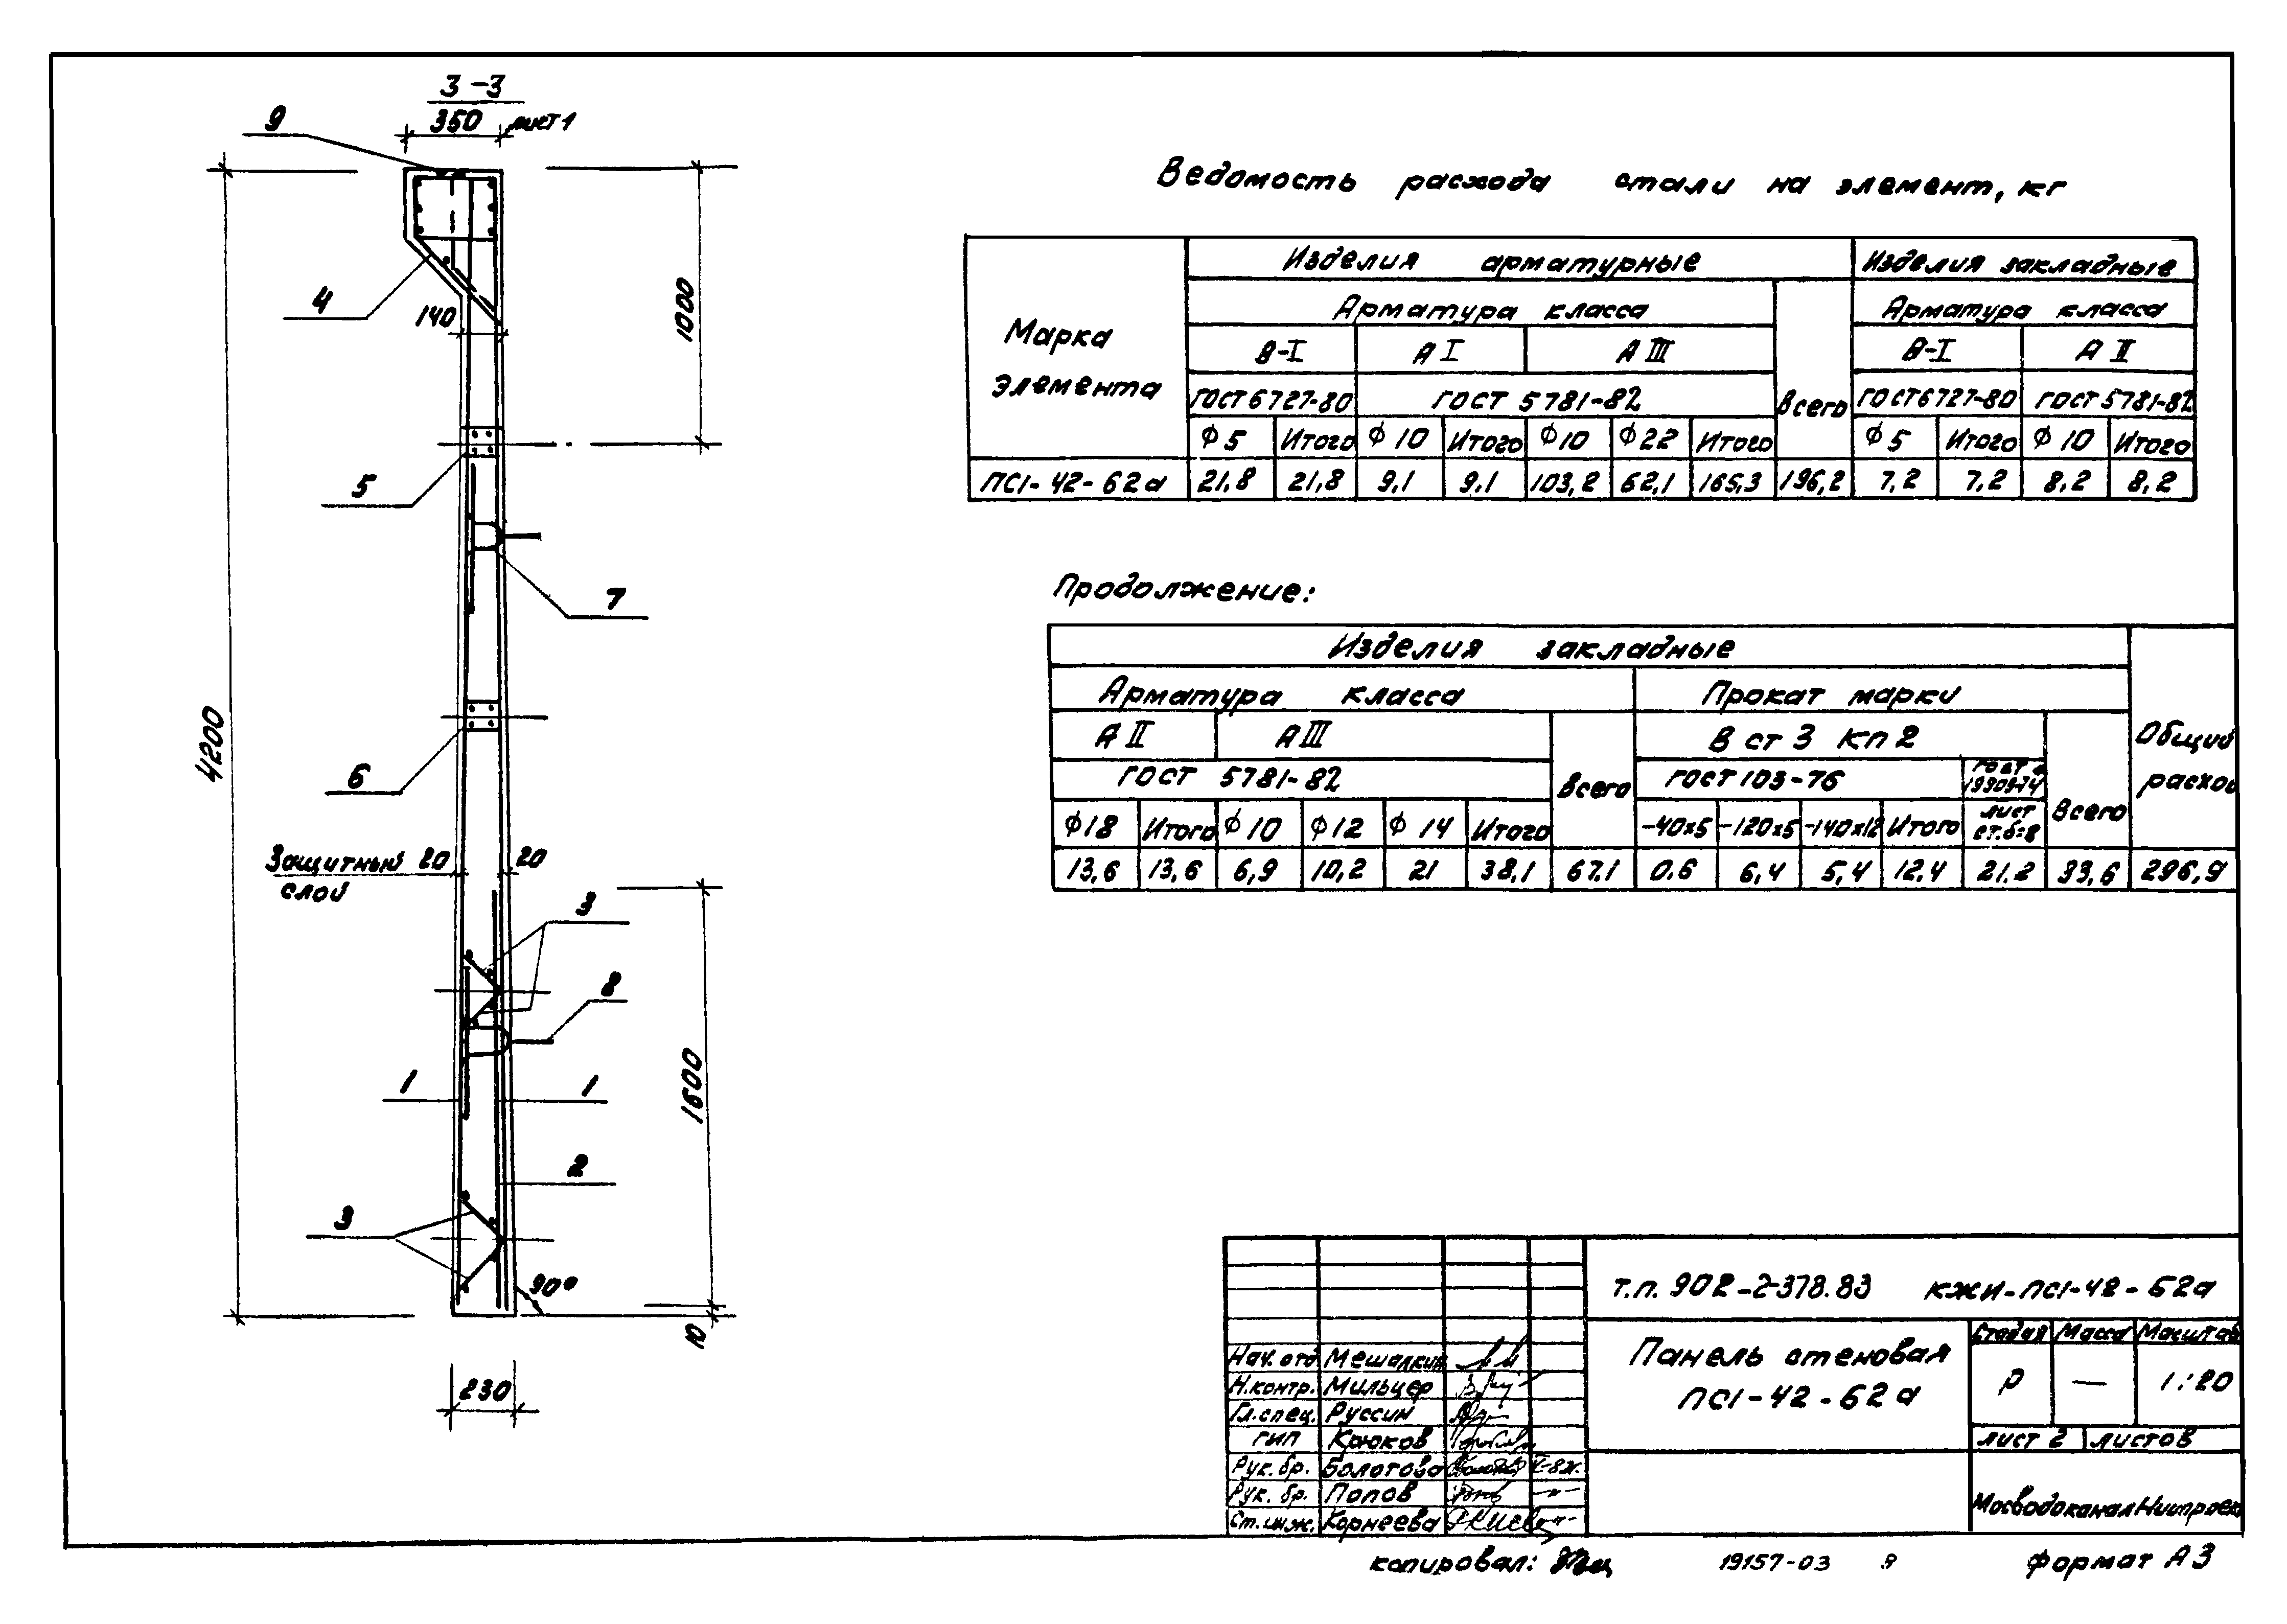 3-3
350 лист 1
9
4
140
1000
5
7
4200
6
Защитный 20 20
слой
3
8
1 1
1600
2
3
90°
10
230
Ведомость расхода стали на элемент, кг
Марка элемента
Изделия арматурные
Изделия закладные
Арматура класса
Арматура класса
В-I А I А III
В-I А II
ГОСТ 6727-80 ГОСТ 5781-82 Всего ГОСТ 6727-80 ГОСТ 5781-82
ϕ 5 Итого ϕ 10 Итого ϕ10 ϕ22 Итого ϕ 5 Итого ϕ 10 Итого
ПС1-42-62а 21,8 21,8 9,1 9,1 103,2 62,1 165,3 196,2 7,2 7,2 8,2 8,2
Продолжение:
Изделия закладные
Арматура класса Прокат марки
А II А III В ст 3 кп 2 Общий расход
ГОСТ 5781-82 Всего ГОСТ 103-76 Всего
ϕ18 Итого ϕ 10 ϕ12 ϕ 14 Итого -40х5 -120х5 -140х12 Итого лист ст.б=8
13,6 13,6 6,9 10,2 21 38,1 67.1 0.6 6,4 5,4 12,4 21.2 33,6 296,9
т.п. 902-2-378.83 КЖИ-ПС1-42-62а
Панель стеновая
ПС1-42-62а
Стадия Масса Масштаб
Р — 1:20
лист 2 листов
МосводоканалНиипроект
Нач. отд Мешалкин
Н.контр. Мильцер
Гл.спец. Руссин
ГИП Крюков
Рук. бр. Болотова
Рук. бр. Попов
Ст.инж. Корнеева
копировал:
19157-03
формат А3